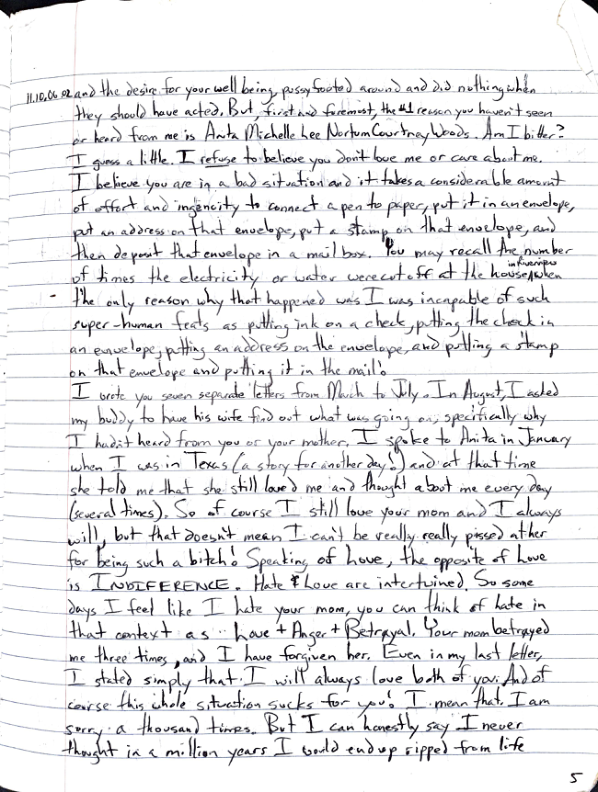 11.10.06.02 and the desire for your well being, pussyfooted around and did nothing when
they should have acted. But, first and foremost, the #1 reason you haven't seen
or heard from me is Anita Michelle Lee Nortum Courtney Woods. Am I bitter?
I guess a little. I refuse to believe you don't love me or care about me.
I believe you are in a bad situation and it takes a considerable amount
of effort and ingencity to connect a pen to paper, put it in an envelope,
put an address on that envelope, put a stamp on that envelope, and
then deposit that envelope in a mail box. You may recall the number
of times the electricity or water were cut off at the house when
- the only reason why that happened was I was incapable of such
super-human feats as putting ink on a check, putting the check in
an envelope, putting an address on the envelope, and putting a stamp
on that envelope and putting it in the mail!
I wrote you seven separate letters from March to July. In August, I asked
my buddy to have his wife find out what was going on, specifically why
I hadn't heard from you or your mother. I spoke to Anita in January
when I was in Texas (a story for another day!) and at that time
she told me that she still loved me and thought about me every day
(several times). So of course I still love your mom and I always
will, but that doesn't mean I can't be really really pissed at her
for being such a bitch! Speaking of Love, the opposite of Love
is INDIFERENCE. Hate & Love are intertwined. So some
days I feel like I hate your mom, you can think of hate in
that context as: Love + Anger + Betrayal. Your mom betrayed
me three times, and I have forgiven her. Even in my last letter,
I stated simply that I will always love both of you. And of
course this whole situation sucks for you! I mean that. I am
sorry a thousand times. But I can honestly say I never
thought in a million years I would end up ripped from life
5